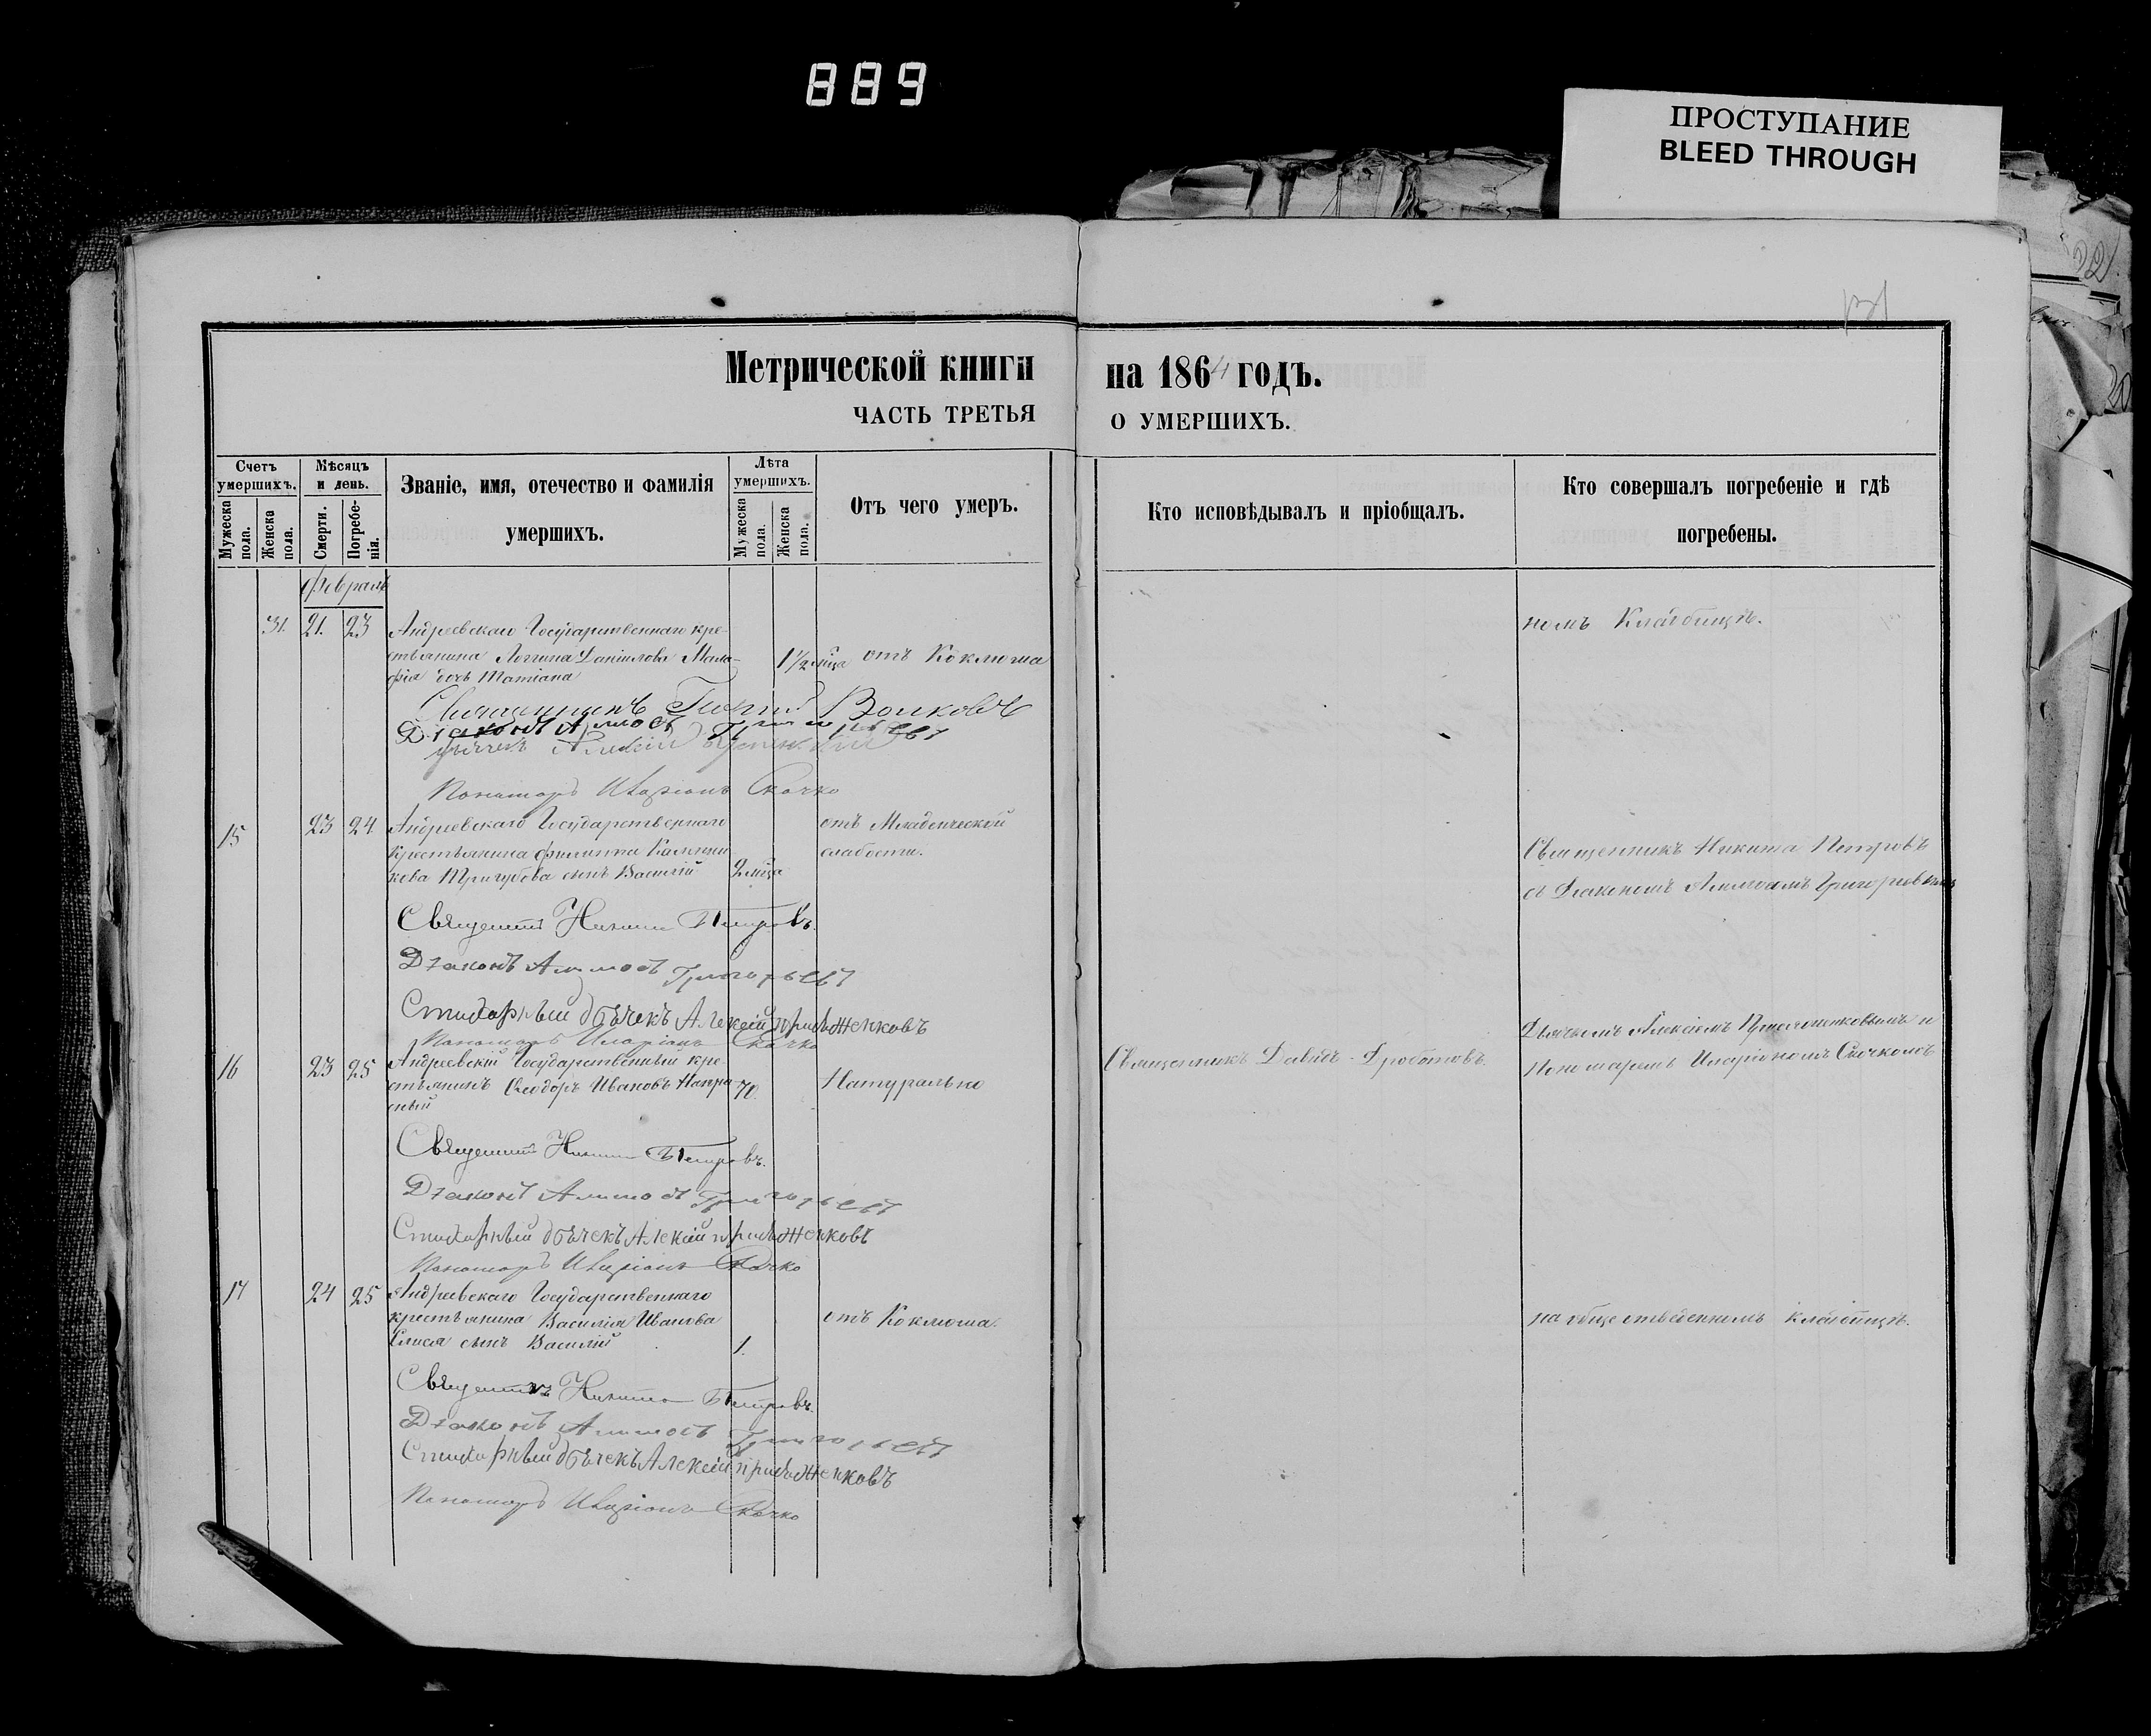 889
ПРОСТУПАНИЕ
BLEED THROUGH
Метрической книги на 1864 годъ.
ЧАСТЬ ТРЕТЬЯ О УМЕРШИХЪ.
Счетъ умершихъ.
Мужеска пола.
Женска пола.
Мѣсяцъ и день.
Смерти.
Погребенія.
Званіе, имя, отечество и фамилія умершихъ.
Лѣта умершихъ.
Мужеска пола.
Женска пола.
Отъ чего умеръ.
Кто исповѣдывалъ и пріобщалъ.
Кто совершалъ погребеніе и гдѣ погребены.
Февраль
31. 21. 23 Андреевскаго Государственнаго кре-
стьянина Логгина Даніилова
дочь Татіана 1½ мѣца отъ Коклюша
номъ Кладбищѣ.
Священникъ Волковъ
Діаконъ Григорьевъ
Пономарь Иларіонъ Скачко
15 23 24 Андреевскаго Государственнаго
Крестьянина Филиппа
Тригубова сынъ Василій 2 мѣца
отъ Младенческой
слабости.
Священникъ Никита Петровъ
съ Діакономъ Григорьевымъ
Священникъ Никита Петровъ.
Діаконъ Григорьевъ
Стихарный дьячекъ Алексій
Пономарь Иларіонъ Скачко
Дьячкомъ Алексіемъ и
Пономаремъ Иларіономъ Скачкомъ
16 23 25 Андреевскій Государственный кре-
стьянинъ Ѳеодоръ Ивановъ 70.
Натурально
Священникъ Давидъ Дроботовъ.
Священникъ Никита Петровъ.
Діаконъ Григорьевъ
Стихарный дьячекъ Алексій
Пономарь Иларіонъ Скачко
17 24 25 Андреевскаго Государственнаго
крестьянина Василія Иванова
сынъ Василій 1.
отъ Коклюша.
на общественномъ кладбищѣ.
Священникъ Никита Петровъ.
Діаконъ Григорьевъ
Стихарный дьячекъ Алексій
Пономарь Иларіонъ Скачко